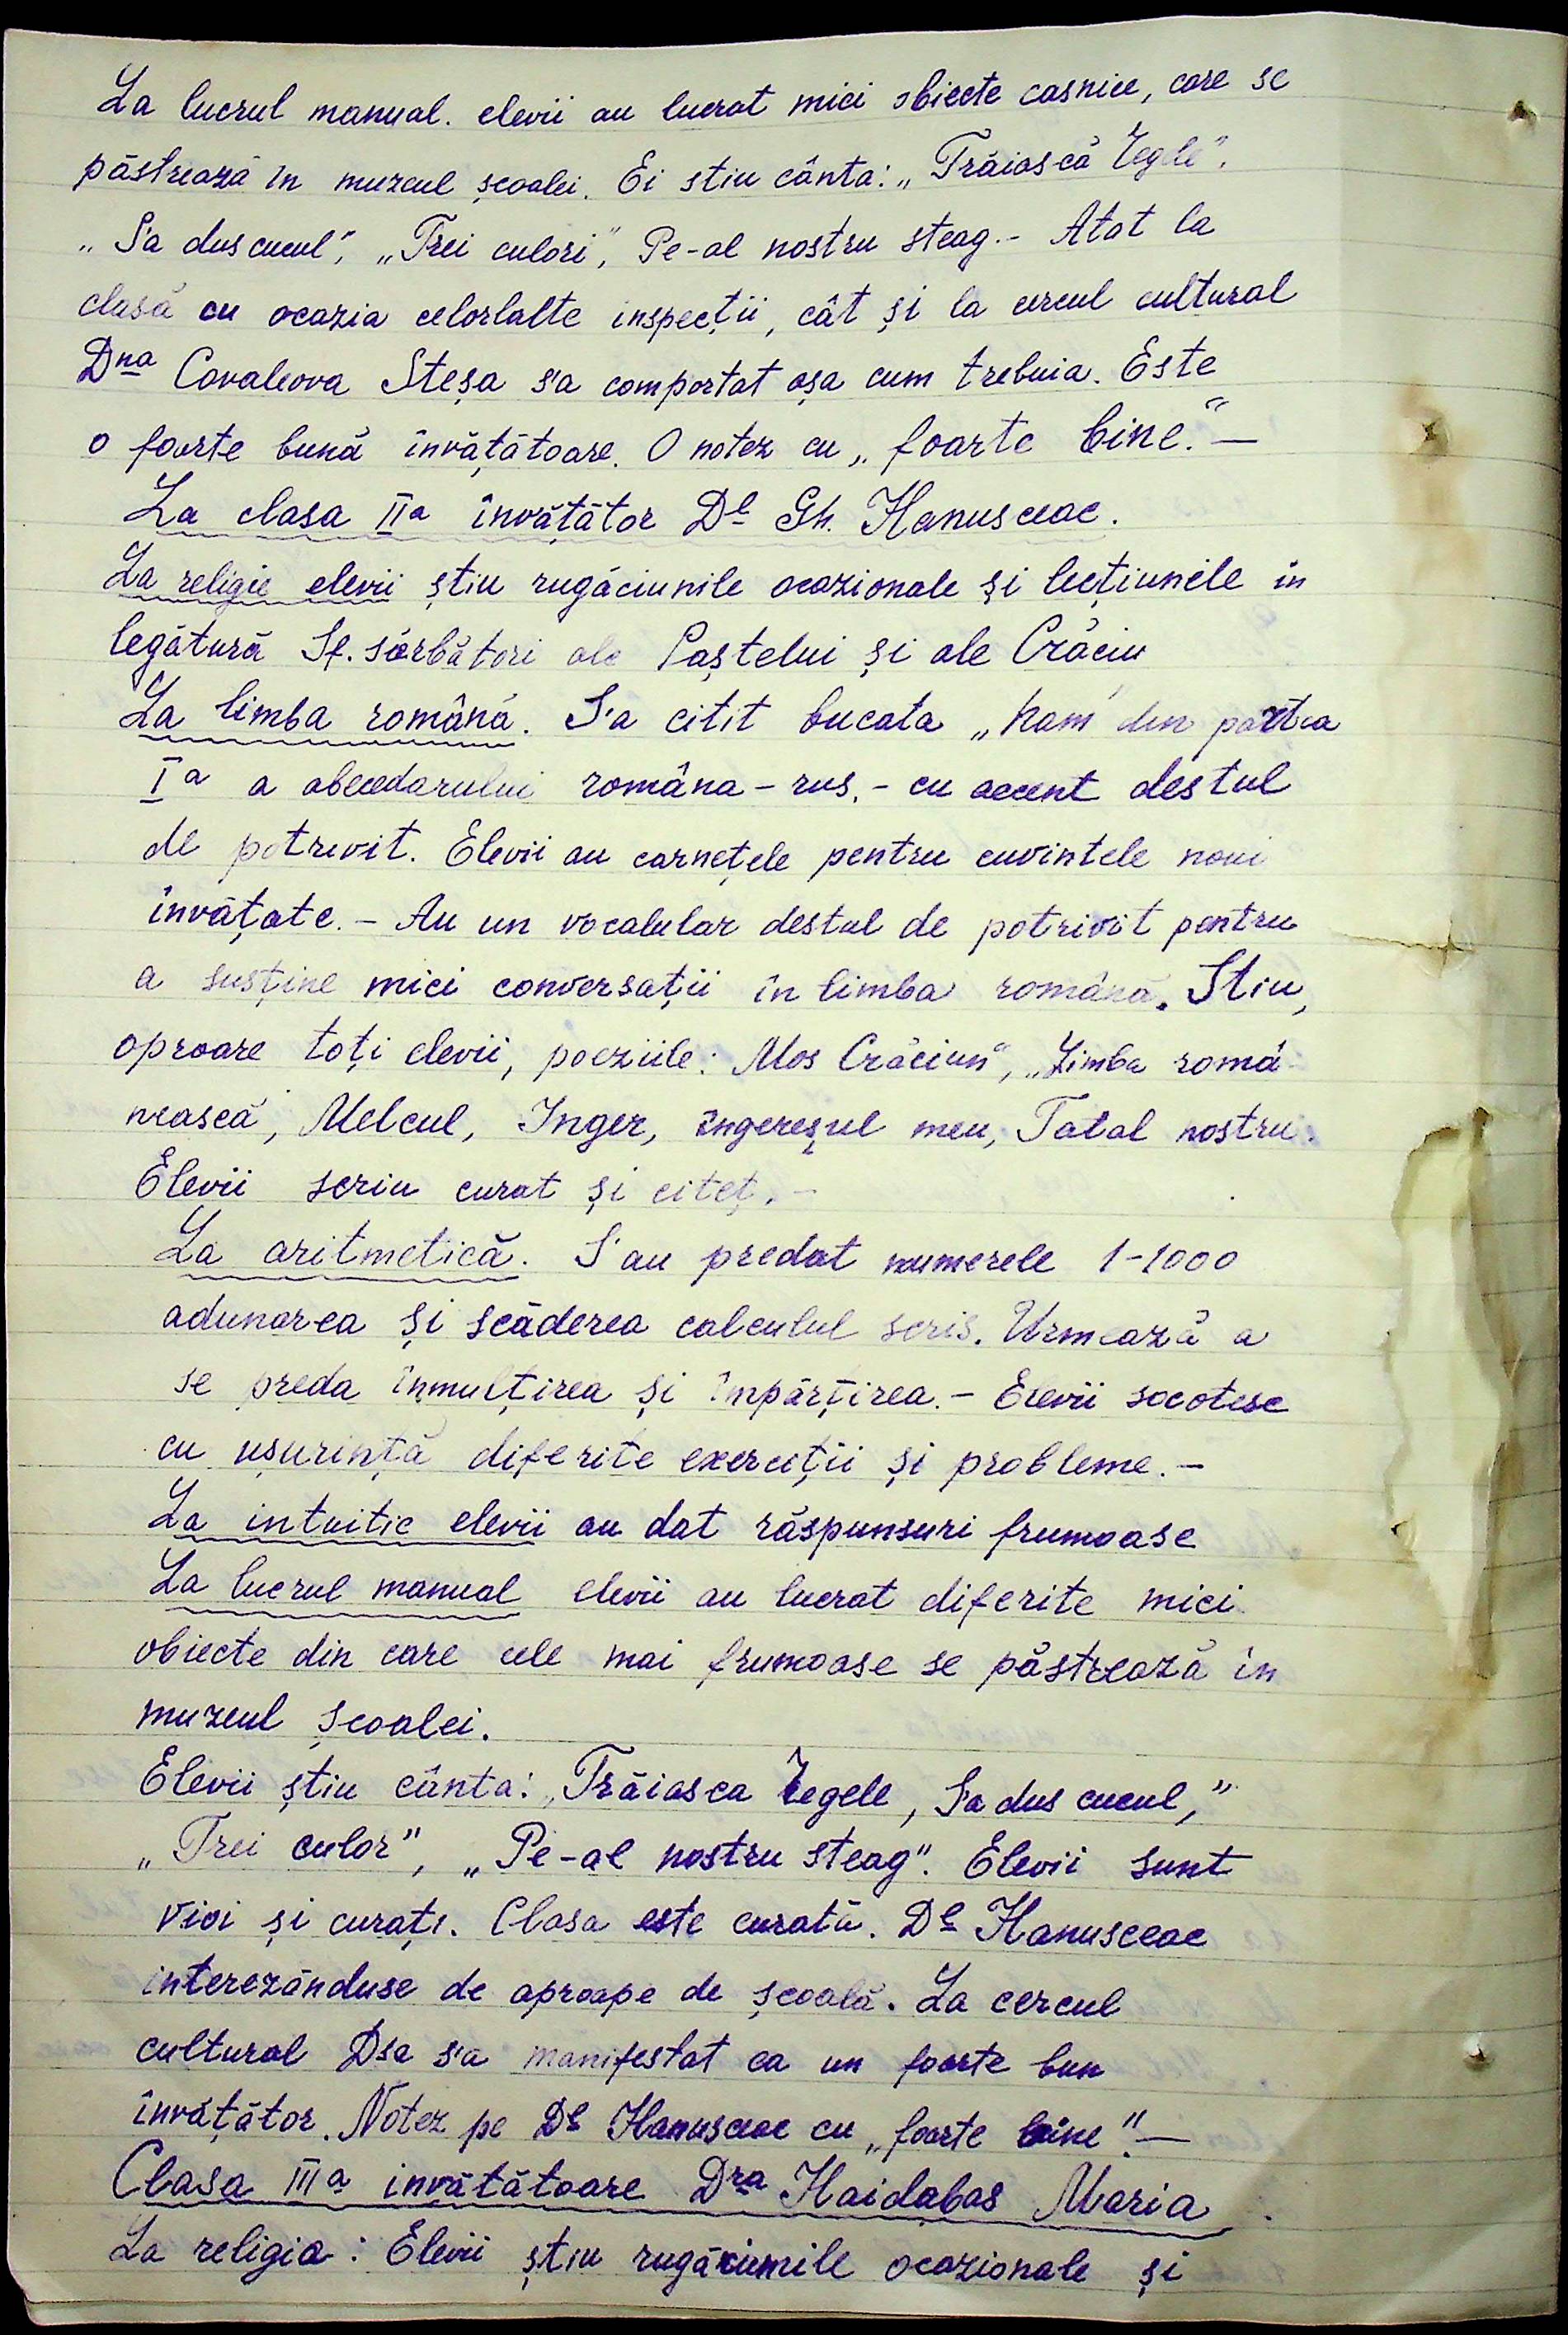 La lucrul manual. elevii au lucrat mici obiecte casnice, care se
păstrează în muzeul școalei. Ei stiu cânta: „Trăiască Regele",
„S'a dus cucul", „Trei culori", Pe-al nostru steag.- Atat la
clasă cu ocazia celorlalte inspecții, cât și la cercul cultural
Dna Covaleova Steșa s'a comportat așa cum trebuia. Este
o foarte bună învățătoare. O notez cu „foarte bine." —
La clasa IIa învățător Dl Gh. Hanusceac.
La religie elevii știu rugăciunile ocazionale și lecțiunele in
legătură Sf. sărbători ale Paștelui și ale Crăciu
La limba română. S'a citit bucata „ham" din partea
Ia a abecedarului româna-rus.- cu accent destul
de potrevit. Elevii au carnețele pentru cuvintele noui
învățate. - Au un vocabular destul de potrivit pentru
a susține mici conversații în limba română. Stiu,
aproare toți elevii, poeziile: Mos Crăciun", „Limba româ-
nească, Melcul, Inger, îngereșul meu, Tatal nostru.
Elevii scriu curat și citeț. -
La aritmetică. S'au predat numerele 1-1000
adunarea și scăderea calculul scris. Urmează a
se preda înmulțirea și împărțirea. - Elevii socotesc
cu ușurință diferite exerciții și probleme. -
La intuitie elevii au dat răspunsuri frumoase
La lucrul manual elevii au lucrat diferite mici
obiecte din care cele mai frumoase se păstrează in
muzeul școalei.
Elevii știu cânta: „Trăiasca Regele, S'a dus cucul,"
„Trei culor", „Pe-al nostru steag". Elevii sunt
vioi și curați. Clasa este curată. Dl Hanusceac
interezânduse de aproape de școală. La cercul
cultural Dsa s'a manifestat ca un foarte bun
învățător. Notez pe Dl Hanusceac cu „foarte bine". —
Clasa IIIa invățătoare Dra Haidabas Maria.
La religia: Elevii știu rugăciumile ocazionale și